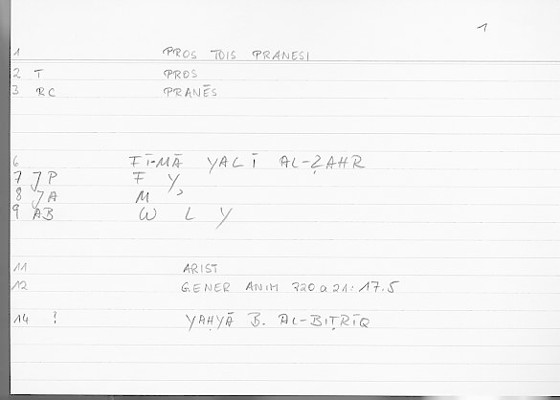 1
1 PROS TOIS PRANESI
2 T PROS
3 RC PRANĒS
6 FĪ-MĀ YALĪ AL-ẒAHR
7 JP F Y
8 JA M
9 AB W L Y
11 ARIST
12 GENER ANIM 720a21: 17.5
14 ! YAḤYĀ B. AL-BIṬRĪQ